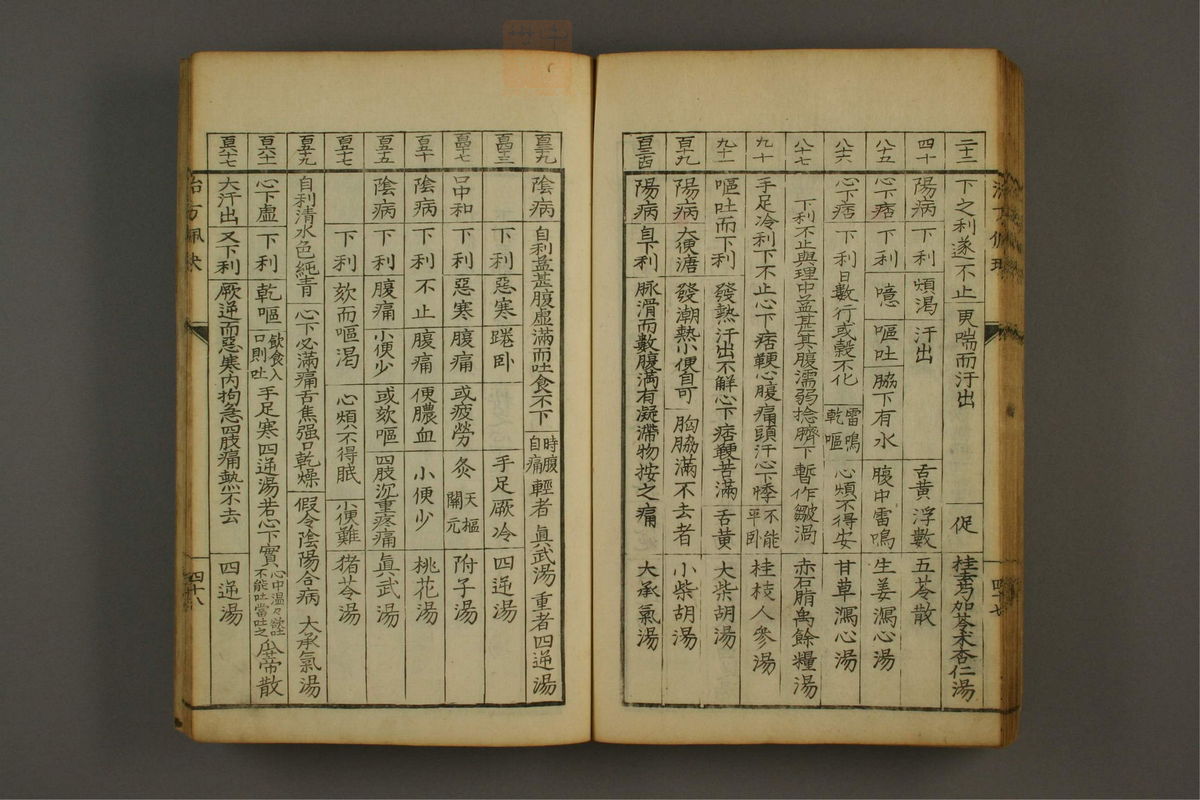 二十二 下之利遂不止 更喘而汗出 促 桂去芍加苓朮杏仁湯
四十 陽病 下利 煩渴 汗出 舌黄 浮數 五苓散
八十五 心下痞 下利 噫 嘔吐 脇下有水 腹中雷鳴 生姜瀉心湯
八十六 心下痞 下利日數行或穀不化 雷鳴 乾嘔 心煩不得安 甘草瀉心湯
八十七 下利不止與理中益甚其腹濡弱捻臍下暫作皺渦 赤石脂禹餘糧湯
九十 手足冷利下不止心下痞鞕心腹痛頭汗心下悸 不能平卧 桂枝人參湯
九十二 嘔吐而下利 發熱汗出不解心下痞鞕苦滿 舌黄 大柴胡湯
百十九 陽病 大便溏 發潮熱小便自可 胸脇滿不去者 小柴胡湯
百三十四 陽病 自下利 脉滑而數腹滿有凝滯物按之痛 大承氣湯
四十七
百三十九 陰病 自利益甚腹虛滿而吐食不下 時腹自痛 輕者 眞武湯 重者四逆湯
百四十三 下利 惡寒 踡卧 手足厥冷 四逆湯
百四十七 口中和 下利 惡寒 腹痛 或疲勞 灸 天樞 關元 附子湯
百五十 陰病 下利 不止 腹痛 便膿血 小便少 桃花湯
百五十五 陰病 下利 腹痛 小便少 或欬嘔 四肢沉重疼痛 眞武湯
百五十七 下利 欬而嘔渴 心煩不得眠 小便難 猪苓湯
百五十九 自利清水色純青 心下必滿痛舌焦强口乾燥 假令陰陽合病 大承氣湯
百六十一 心下虛 下利 乾嘔 飲食入口則吐 手足寒四逆湯若心下實 心中温々欲吐不能吐當吐之 瓜蒂散
百六十七 大汗出 又下利 厥逆而惡寒内拘急四肢痛熱不去 四逆湯
四十八